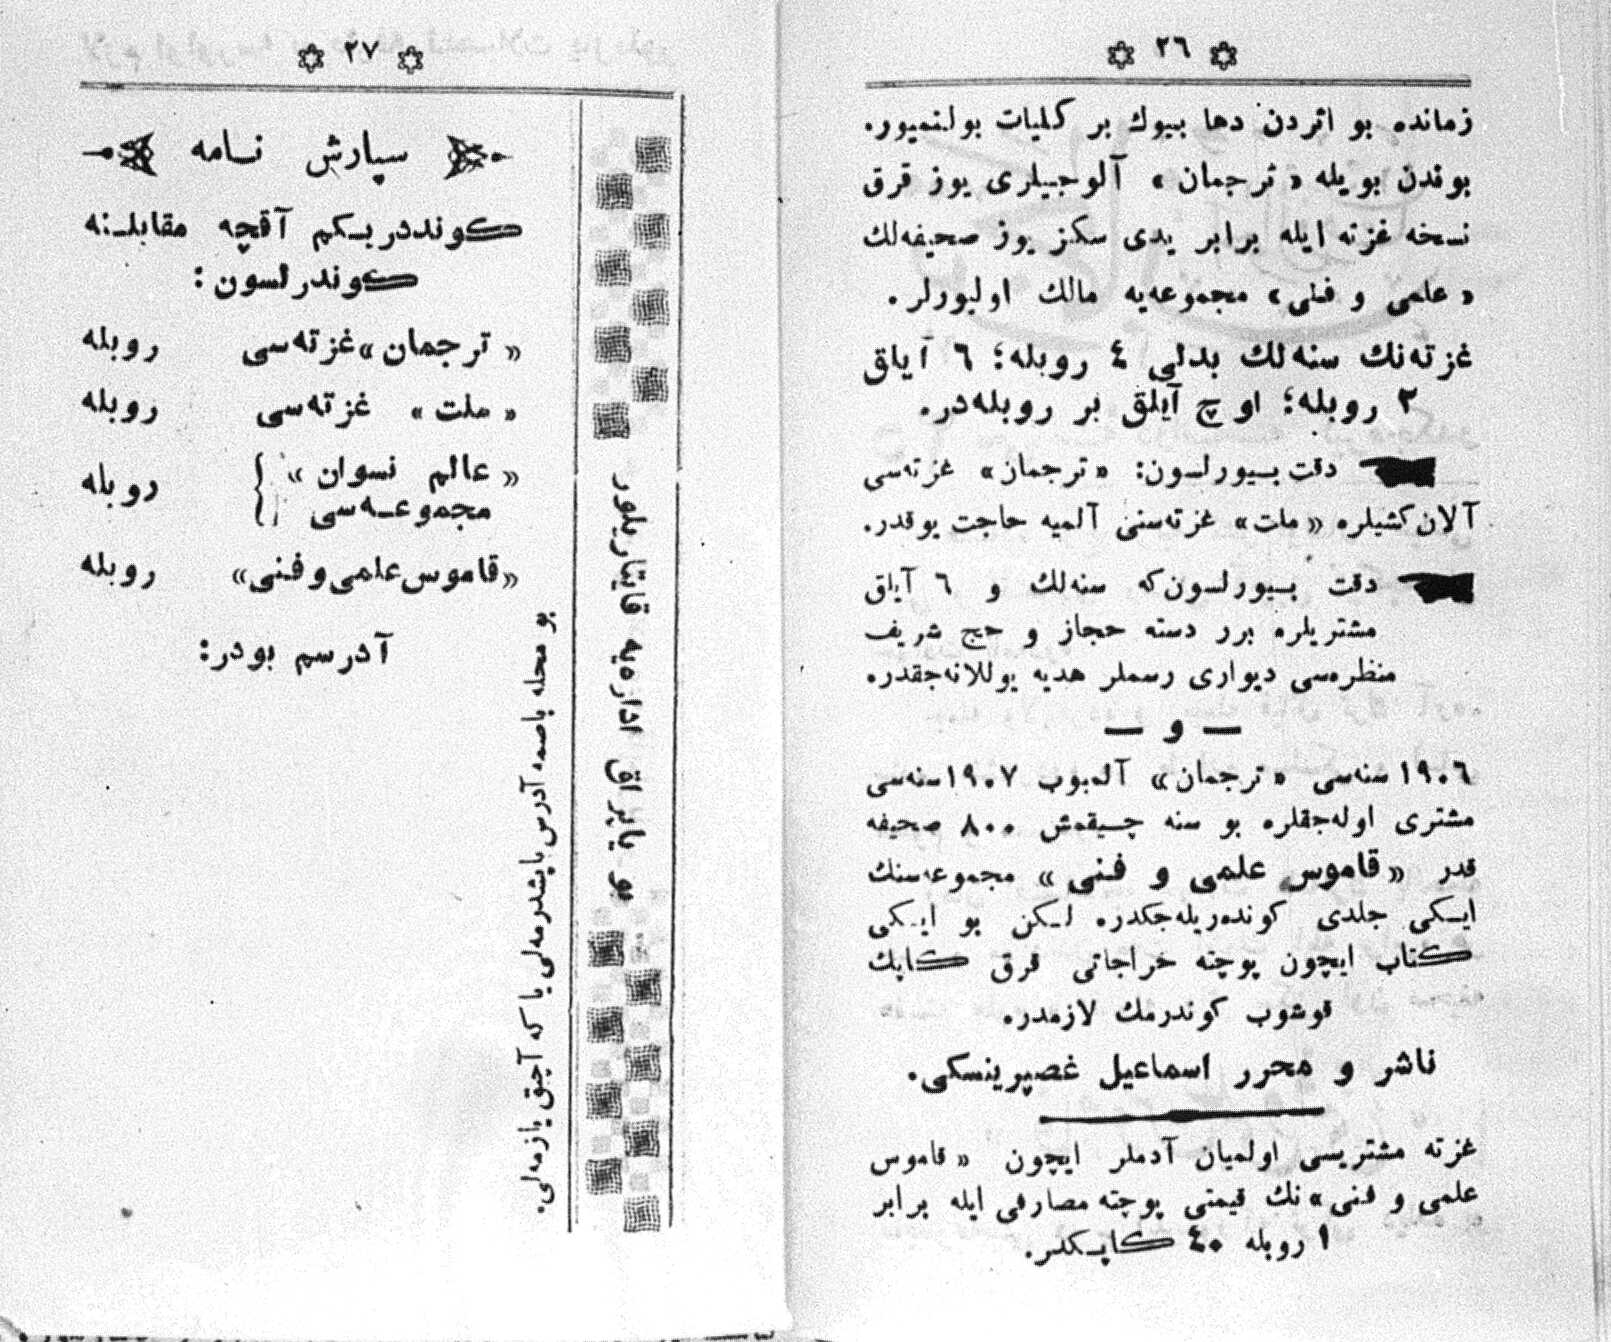 ٢٦
زمانده بو اثردن دها بيوك بر كليات بولنميور.
بوندن بويله «ترجمان» آلوجيلرى يوز قرق
نسخه غزته ايله برابر يدى سكز يوز صحيفه‌لك
«علمى و فنى» مجموعه‌يه مالك اوليورلر.
غزته‌نك سنه‌لك بدلى ٤ روبله؛ ٦ آيلق
٢ روبله؛ اوچ آيلق بر روبله‌در.
دقت بيورلسون: «ترجمان» غزته‌سى
آلان كشيلره «ملت» غزته‌سنى آلميه حاجت يوقدر.
دقت بيورلسون‌كه سنه‌لك و ٦ آيلق
مشتريلره برر دسته حجاز و حج شريف
منظره‌سى ديوارى رسملر هديه يوللانه‌جقدر.
— و —
١٩٠٦ سنه‌سى «ترجمان» آلمبوب ١٩٠٧ سنه‌سى
مشترى اوله‌جقلره بو سنه چيقمش ٨٠٠ صحيفه
قدر «قاموس علمى و فنى» مجموعه‌سنك
ايكى جلدى كونده‌ريله‌جكدر. لكن بو ايكى
كتاب ايچون پوچته خراجاتى قرق كاپك
قوشوب كوندرمك لازمدر.
ناشر و محرر اسماعيل غصپرينسكى.
غزته مشتريسى اولميان آدملر ايچون «قاموس
علمى و فنى» نك قيمتى پوچته مصارفى ايله برابر
١ روبله ٤٠ كاپكدر.
٢٧
سپارش نامه
كوندديكم آقچه مقابلنه
كوندرلسون:
«ترجمان» غزته‌سى روبله
«ملت» غزته‌سى روبله
«عالم نسوان» مجموعه‌سى روبله
«قاموس علمى و فنى» روبله
آدرسم بودر:
بو محله باصمه آدرس ياپشدرمه‌لى يا كه آچق يازمه‌لى.
بو ياپراق اداره‌يه قايتاريلور